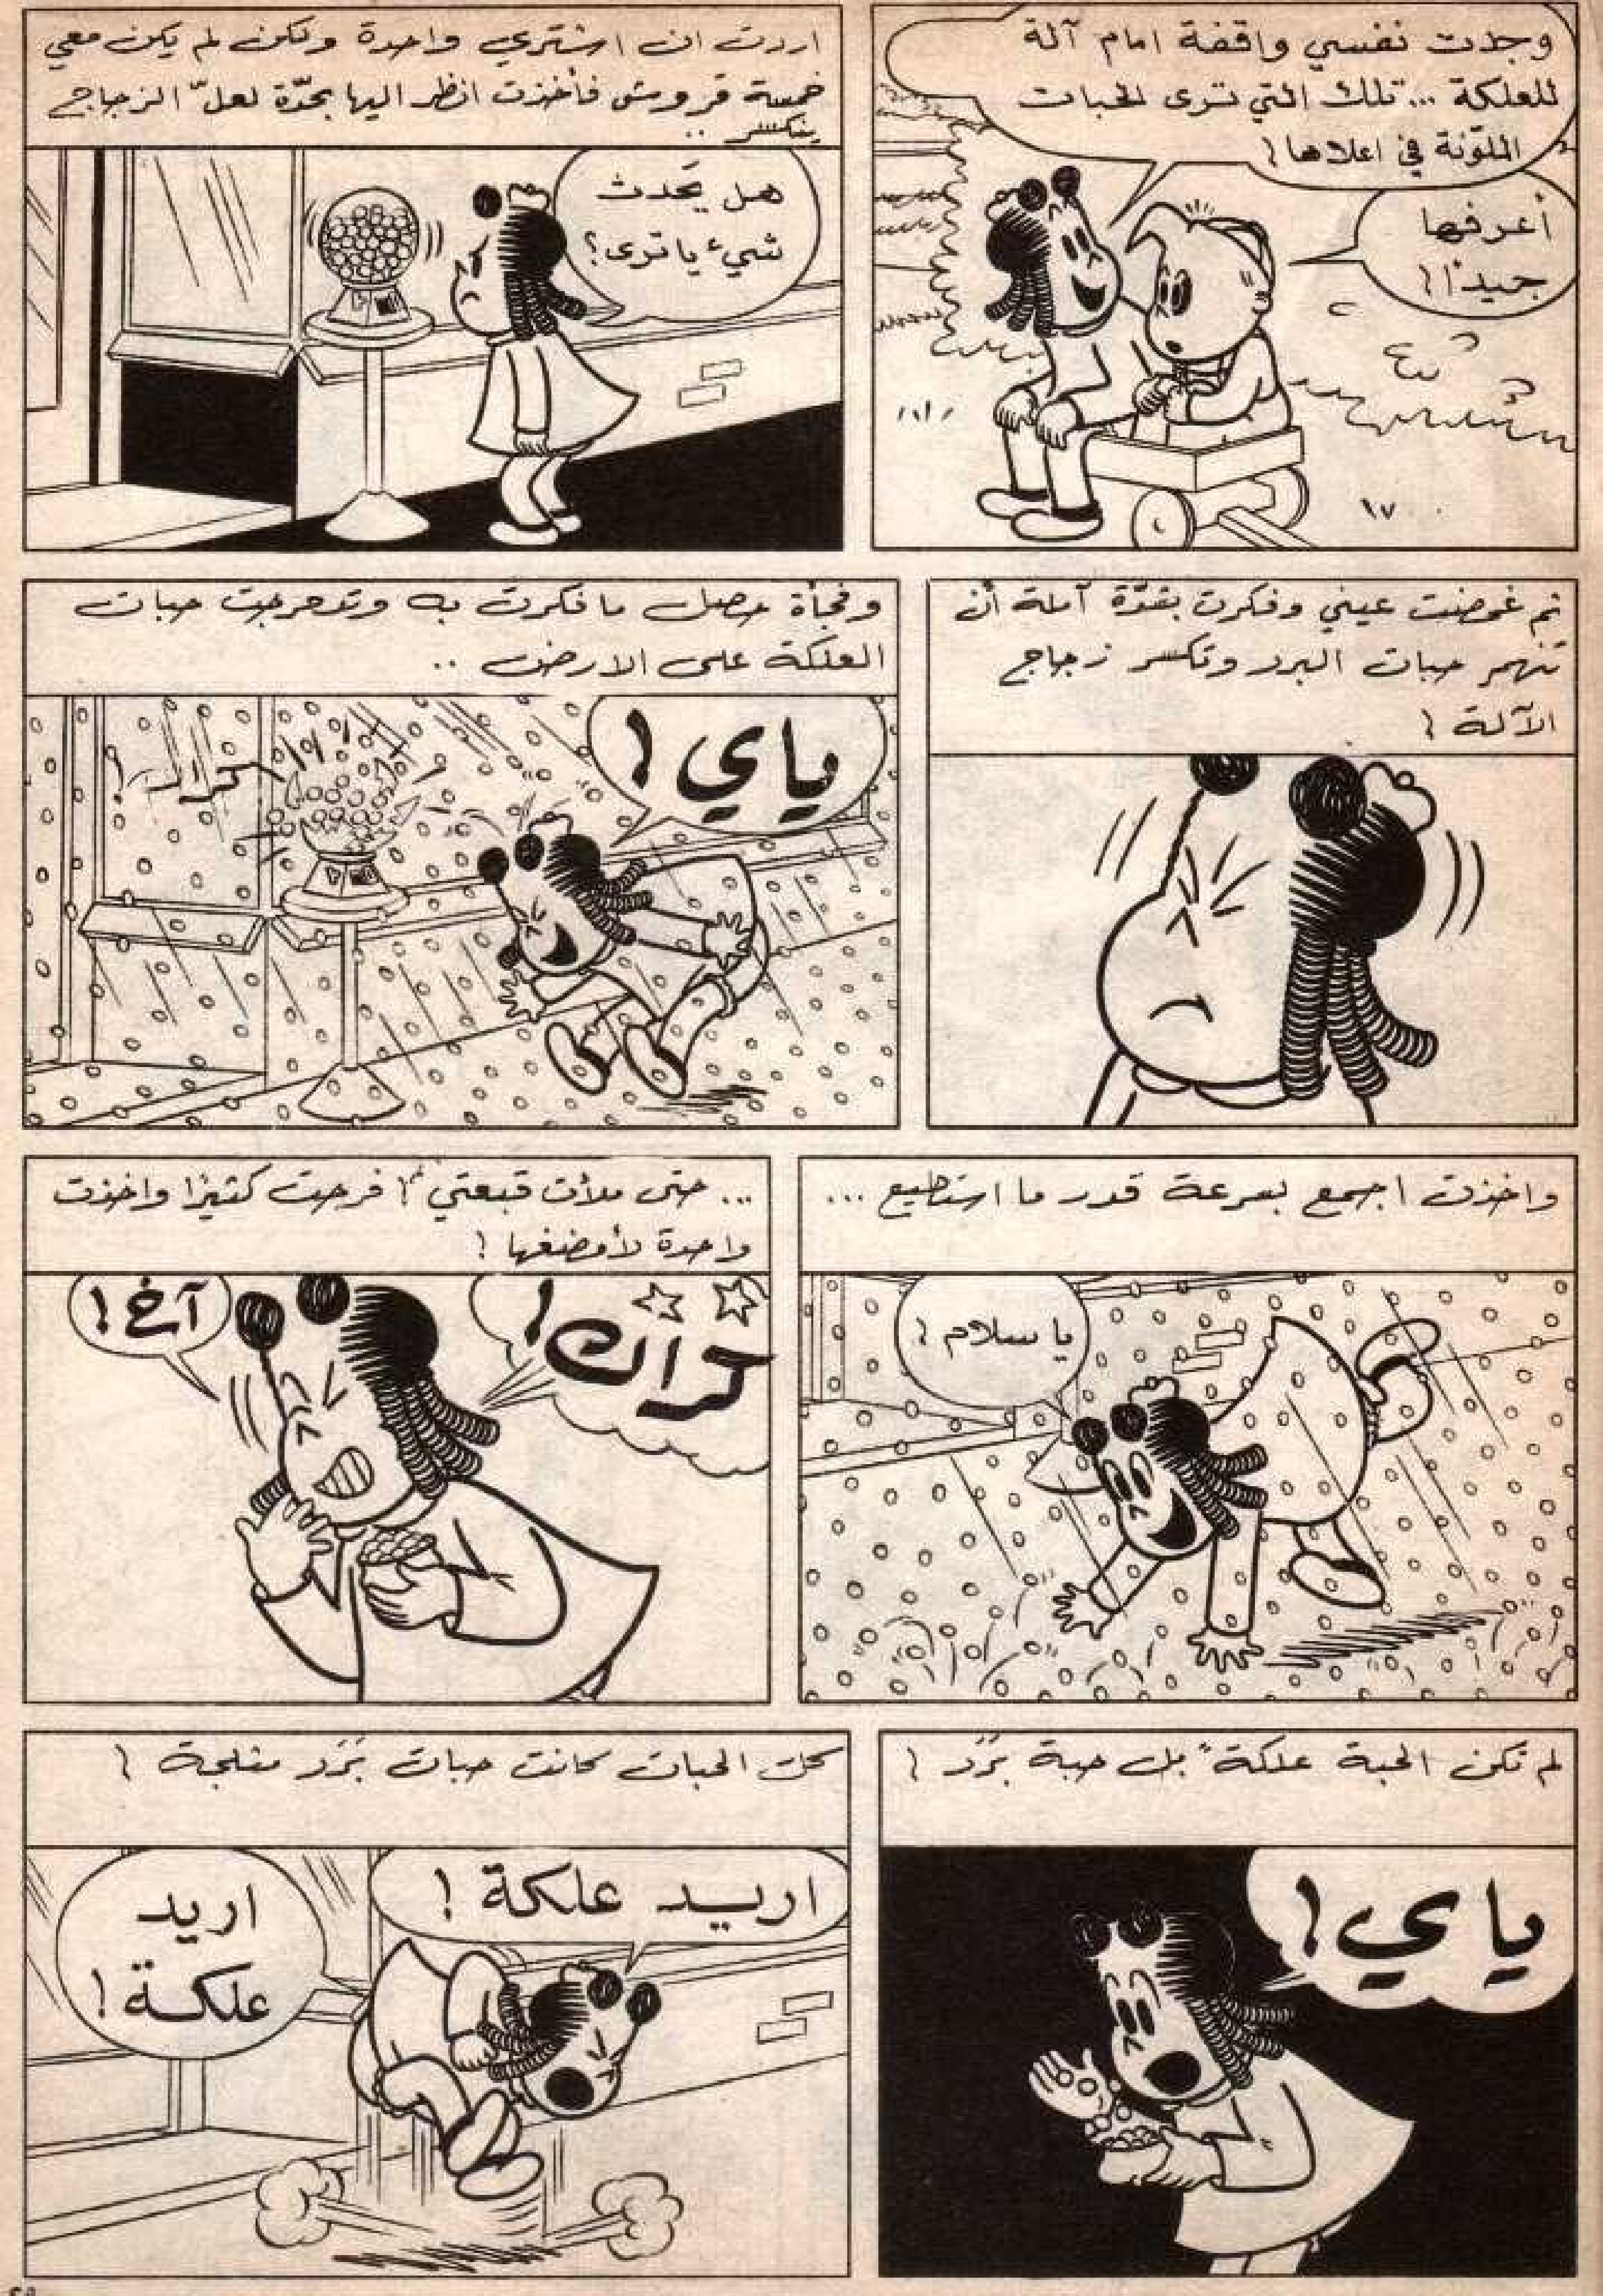 وجدت نفسي واقفة امام آلة
للعلكة ... تلك التي ترى الحبات
الملوّنة في اعلاها !
أعرفها
جيدًا !
اردت ان اشتري واحدة ولكن لم يكن معي
خمسة قروش فأخذت انظر اليها بحدّة لعلّ الزجاج
ينكسر ..
هل يَحدث
شيءٌ يا ترى ؟
ثم غمضت عيني وفكرت بقوّة آملة أن
تنهمر حبات البرد وتكسر زجاج
الآلة !
وفجأة حصل ما فكرت به وتدحرجت حبات
العلكة على الارض ..
ياي !
كراك !
واخذت اجمع بسرعة قدر ما استطيع ...
يا سلام !
... حتى ملأت قبعتي ! فرحت كثيرًا واخذت
واحدة لأمضغها !
كراك !
آخ !
لم تكن الحبة علكةً بل حبة بَرَد !
ياي !
كل الحبات كانت حبات بَرَد مثلجة !
اريد علكة !
اريد
علكة !